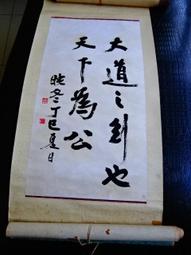 大道之行也
天下為公
晓冬丁巳夏日